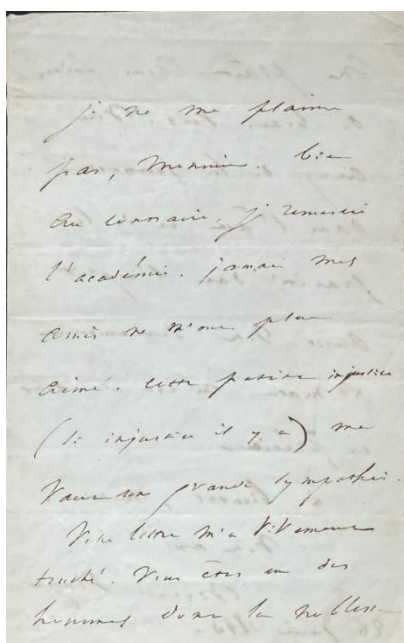 je ne me plains
pas, Monsieur. bien
au contraire, je remercie
l'académie. jamais mes
amis ne m'ont plus
aimé. cette petite injustice
(si injustice il y a) me
vaut une grande sympathie.
Votre lettre m'a vivement
touché. Vous êtes un des
hommes dont la noblesse